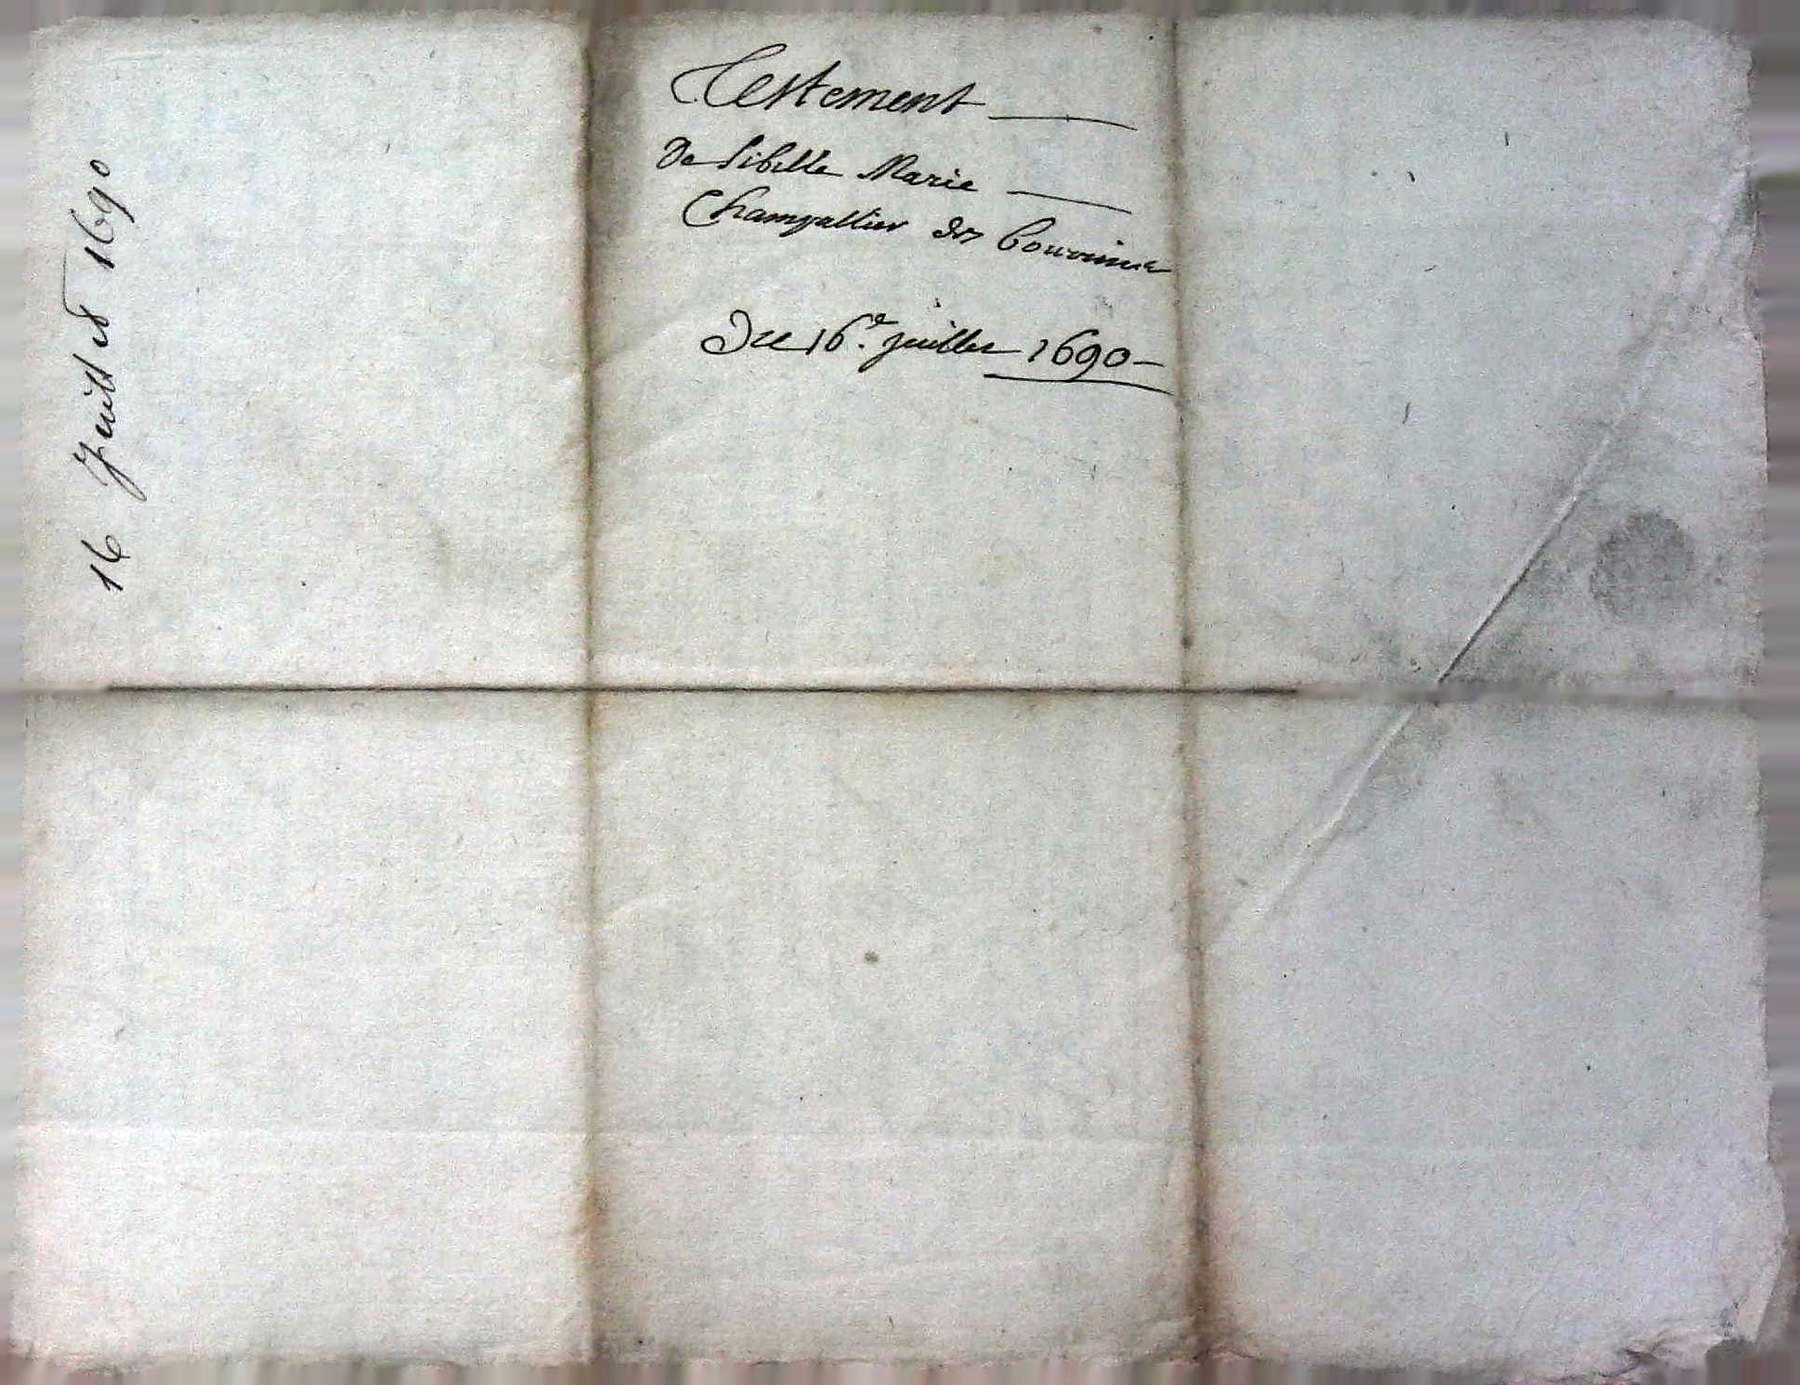 Testement
de Sibille Marie
Champallier des
Du 16e. juillet 1690
16 Juillet 1690